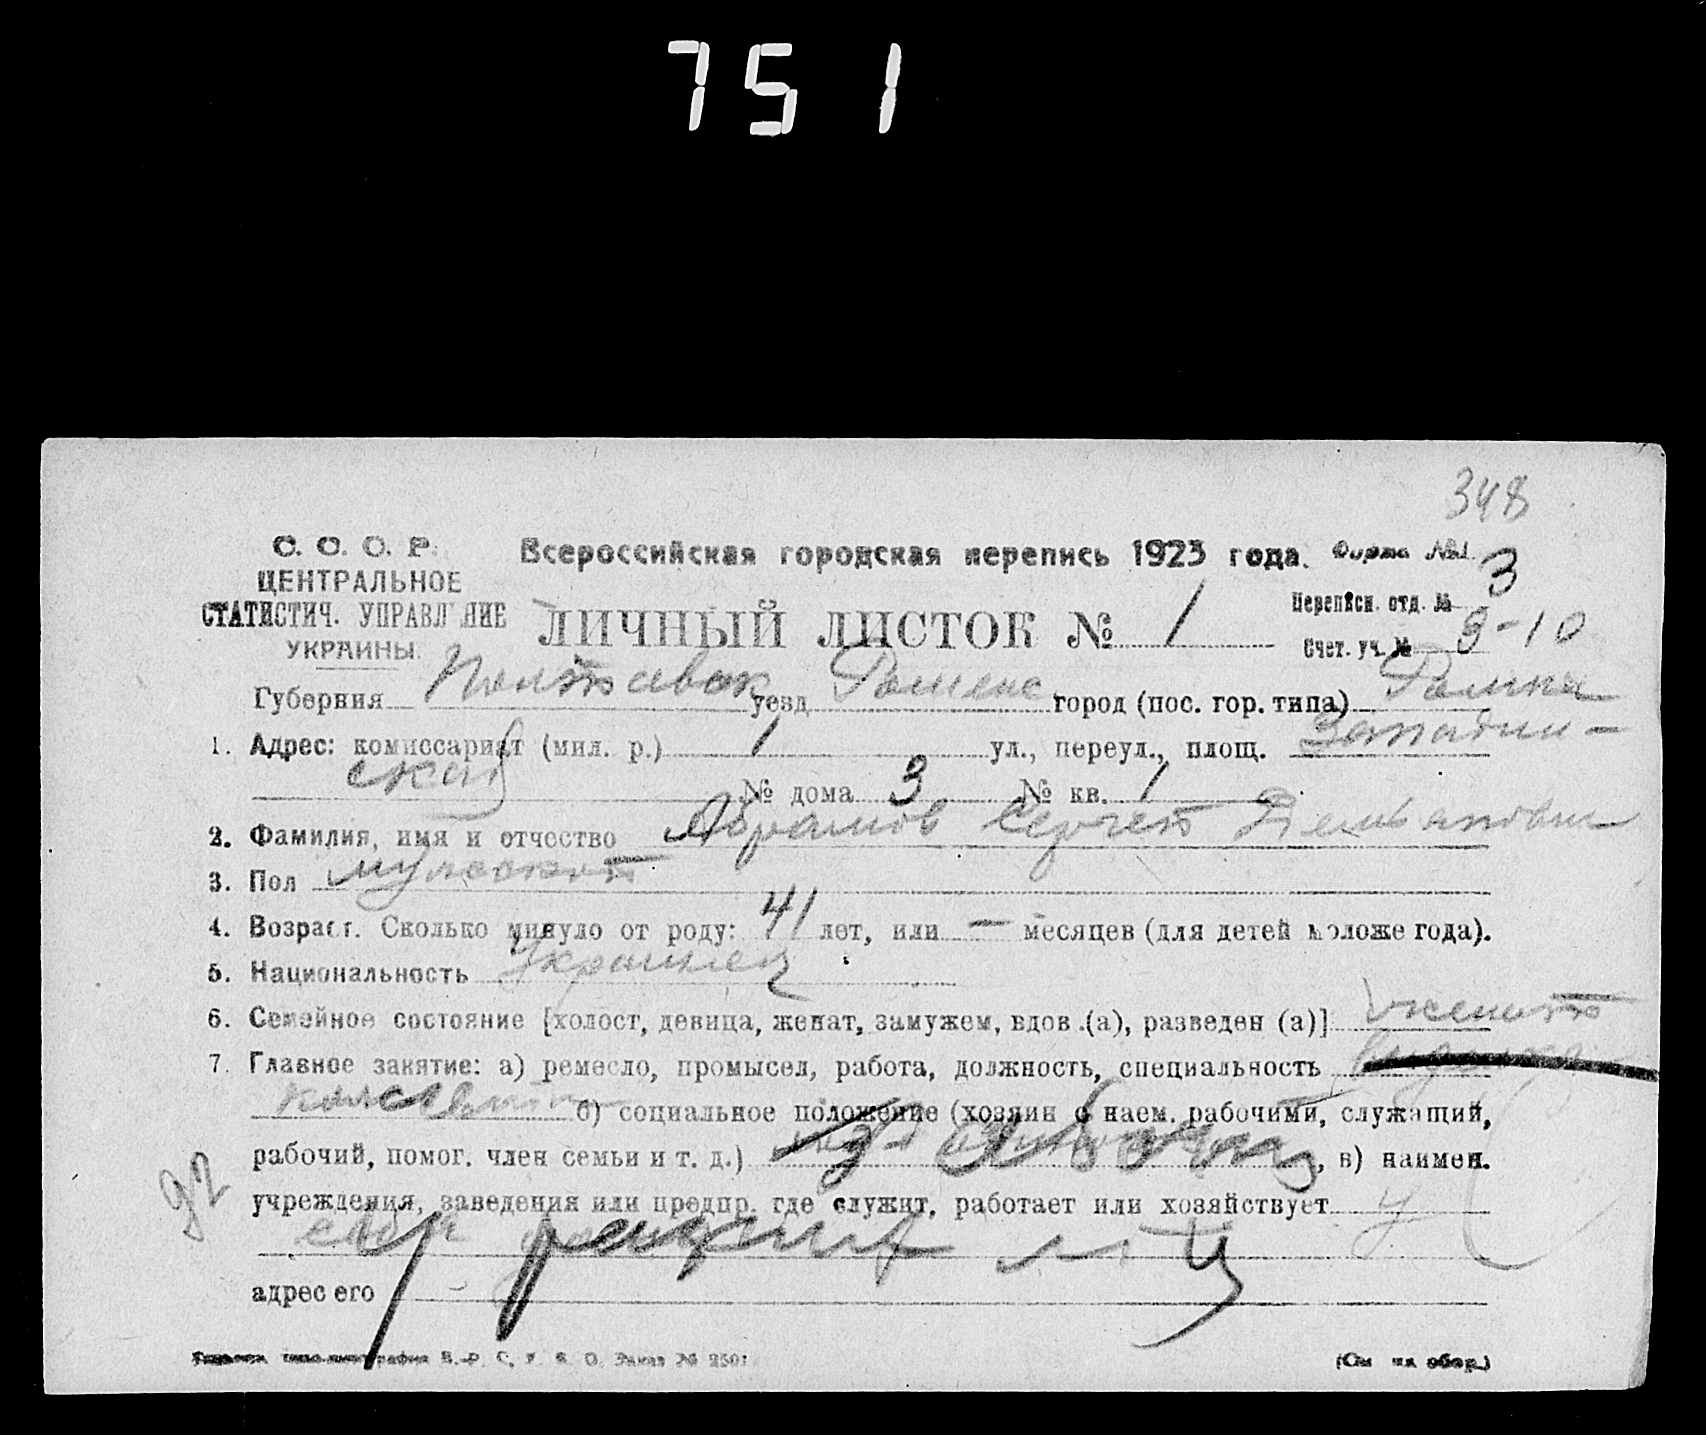 751
348
С. С. С. Р.
ЦЕНТРАЛЬНОЕ
СТАТИСТИЧ. УПРАВЛЕНИЕ
УКРАИНЫ.
Всероссийская городская перепись 1923 года. Форма №1
ЛИЧНЫЙ ЛИСТОК № 1
Переписн. отд. № 3
Счет. уч. № 9-10
Губерния Полтавск уезд Роменс город (пос. гор. типа) Ромны
1. Адрес: комиссариат (мил. р.) 1 ул., переул., площ. Западин-
ская № дома 3 № кв. 1
2. Фамилия, имя и отчество Абрамов Сергей Демьянович
3. Пол мужской
4. Возраст. Сколько минуло от роду: 41 лет, или — месяцев (для детей моложе года).
5. Национальность Украинец
6. Семейное состояние [холост, девица, женат, замужем, вдов.(а), разведен (а)] женат
7. Главное занятие: а) ремесло, промысел, работа, должность, специальность
б) социальное положение (хозяин с наем. рабочими, служащий,
рабочий, помог. член семьи и т. д.) , в) наимен.
92
учреждения, заведения или предпр. где служит, работает или хозяйствует у
адрес его -
Заказ № 2501
(См на обор.)